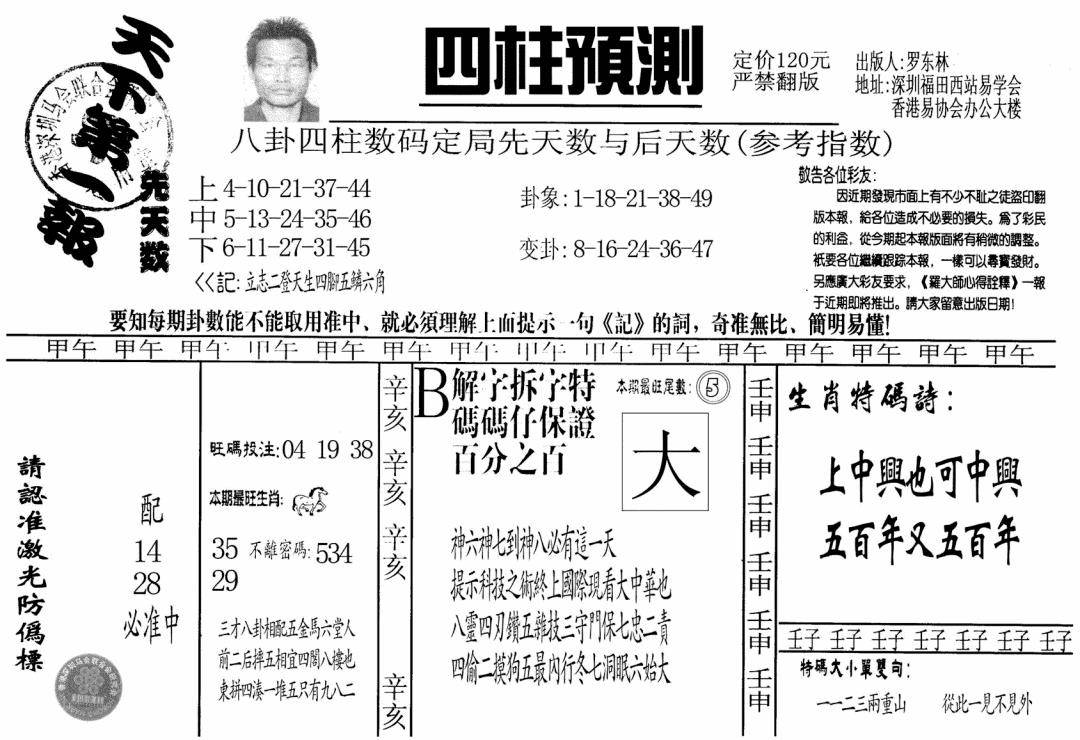 天下第一報
四柱預測
定价120元
严禁翻版
出版人:罗东林
地址:深圳福田西站易学会
香港易协会办公大楼
八卦四柱数码定局先天数与后天数(参考指数)
先天数
上4-10-21-37-44
中5-13-24-35-46
下6-11-27-31-45
<<記:立志二登天生四腳五鱗六角
卦象:1-18-21-38-49
变卦:8-16-24-36-47
敬告各位彩友:
因近期發現市面上有不少不恥之徒盜印翻
版本報，給各位造成不必要的損失。為了彩民
的利益，從今期起本報版面將有稍微的調整。
衹要各位繼續跟踪本報，一樣可以尋寶發財。
另應廣大彩友要求，《羅大師心得詮釋》一報
于近期即將推出。請大家留意出版日期!
要知每期卦數能不能取用准中、就必須理解上面提示一句《記》的詞，奇准無比、簡明易懂!
甲午 甲午 甲午 甲午 甲午 甲午 甲午 甲午 甲午 甲午 甲午 甲午 甲午 甲午 甲午
請認准激光防偽標
配
14
28
必准中
旺碼投注:04 19 38
本期最旺生肖:
35 不離密碼:534
29
三才八卦相配五金馬六堂人
前二后摔五相宜四閣八樓也
東拼四湊一堆五只有九八二
辛亥
辛亥
辛亥
辛亥
B解字拆字特
碼碼仔保證
百分之百
本期最旺尾數:5
大
神六神七到神八必有這一天
提示科技之術終上國際現看大中華也
八靈四刃鑽五雜技三守門保七忠二責
四偷二摸狗五最內行冬七洞眠六始大
壬申
壬申
壬申
壬申
壬申
壬申
生肖特碼詩:
上中興也可中興
五百年又五百年
壬子 壬子 壬子 壬子 壬子 壬子 壬子
特碼大小單雙句:
一一二三兩重山 從此一見不見外